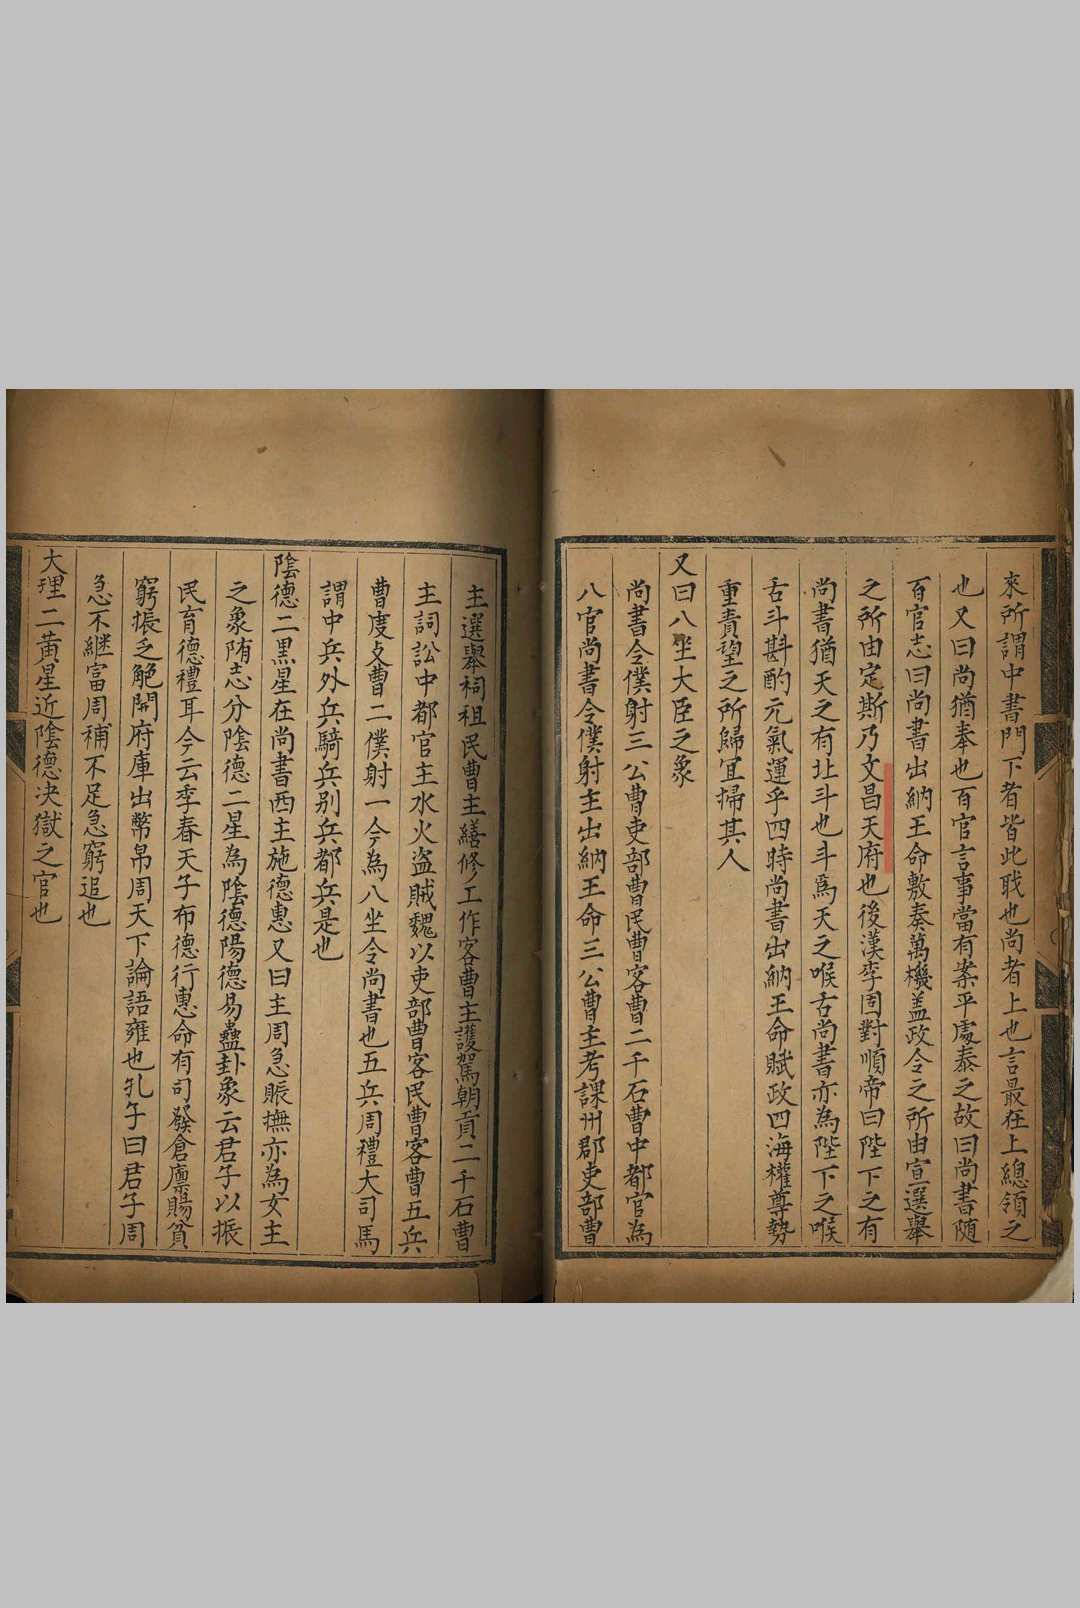 來所謂中書門下者皆此戝也尚者上也言最在上總領之
也又曰尚猶奉也百官言事當有案平處奏之故曰尚書随
百官志曰尚書出納王命敷奏萬機盖政令之所由宣選舉
之所由定斯乃文昌天府也後漢李固對順帝曰陛下之有
尚書猶天之有北斗也斗爲天之喉舌尚書亦為陛下之喉
舌斗斟酌元氣運乎四時尚書出納王命賦政四海權尊勢
重責望之所歸宜掃其人
又曰八坐大臣之象
尚書令僕射三公曹吏部曹民曹客曹二千石曹中都官為
八官尚書令僕射主出納王命三公曹主考課州郡吏部曹
主選舉祠祖民曹主繕修工作客曹主護駕朝貢二千石曹
主詞訟中都官主水火盗賊魏以吏部曹客民曹客曹五兵
曹度支曹二僕射一令為八坐令尚書也五兵周禮大司馬
謂中兵外兵騎兵别兵都兵是也
陰德二黒星在尚書西主施德惠又曰主周急賑撫亦為女主
之象隋志分陰德二星為陰德陽德易蠱卦象云君子以振
民育德禮耳今云季春天子布德行惠命有司發倉廪賜貧
窮振乏絶開府庫出幣帛周天下論語雍也孔子曰君子周
急不継富周補不足急窮迫也
大理二黄星近陰德决獄之官也